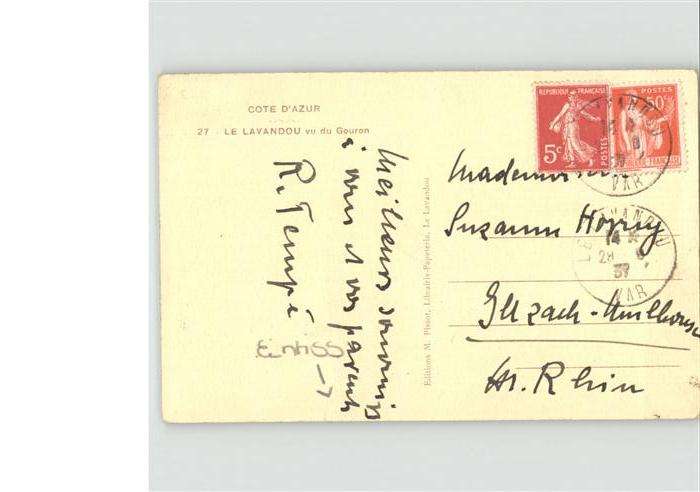 COTE D'AZUR
27 LE LAVANDOU vu du Gouron
Meilleurs souvenirs
à vous et vos parents
R. Tempé
Editions M. Pinsot, Librairie-Papeterie, Le Lavandou
REPUBLIQUE FRANÇAISE
5c
POSTES
POSTES
50c
FRANÇAISE
VAR
LAVANDOU
14
28
37
VAR
Mademoiselle
Suzanne
Illzach-Mulhouse
Ht. Rhin